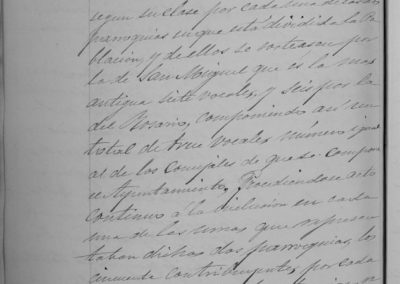 segun su clase por cada una de estas
parroquias en que está dividida la Po
blacion, y de ellos se sortearon por
la de San Miguel que es la mas
antigua siete vocales, y seis por la
del Rosario, componiendo asi un
total de trece vocales número igual
al de los Concejales de que se compon
e Ayuntamiento. Procediendose acto
continuo á la inclusion en cada
una de las urnas que represen
taban dichas dos parroquias, los
cincuenta contribuyentes, por cada